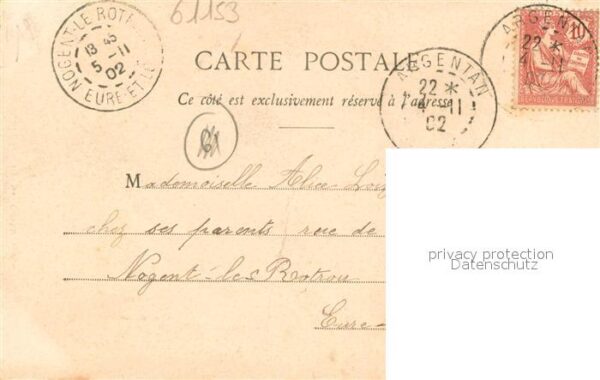 61153
NOGENT-LE-ROTR
13 45
5 -11
02
EURE-ET-L
ARGENTAN
22 *
4 -11
02
ARGENT
22 *
4 -11
10
REPUBLIQUE FRANÇAISE
CARTE POSTALE
Ce côté est exclusivement réservé à l'adresse
61
Mademoiselle Alice
chez ses parents rue de
Nogent-les Rrotrou
Eure-
privacy protection
Datenschutz